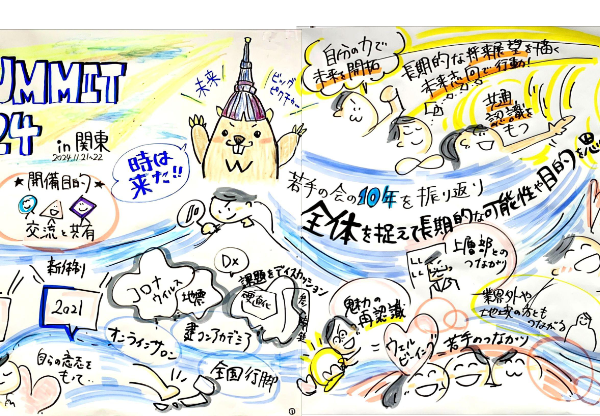 UMMIT
24
in 関東
2024.11.21~22
未来
ビッグ
ピクチャー
時は
来た!!
★開催目的★
交流と共有
新体制
2021
コロナ
ウイルス
地震
DX
課題をディスカッション
オンラインサロン
全国行脚
自らの意志を
もって..
自分の力で
未来を開拓
長期的な将来展望を描く
未来志向で行動!
共通
認識を
もつ
若手の会の10年を振り返り
全体を捉えて長期的な可能性や目的を
上層部との
つながり
魅力の
再認識
業界外や
地域の方とも
つながる
=
ウェル
ビーイング
=
若手のつながり
①